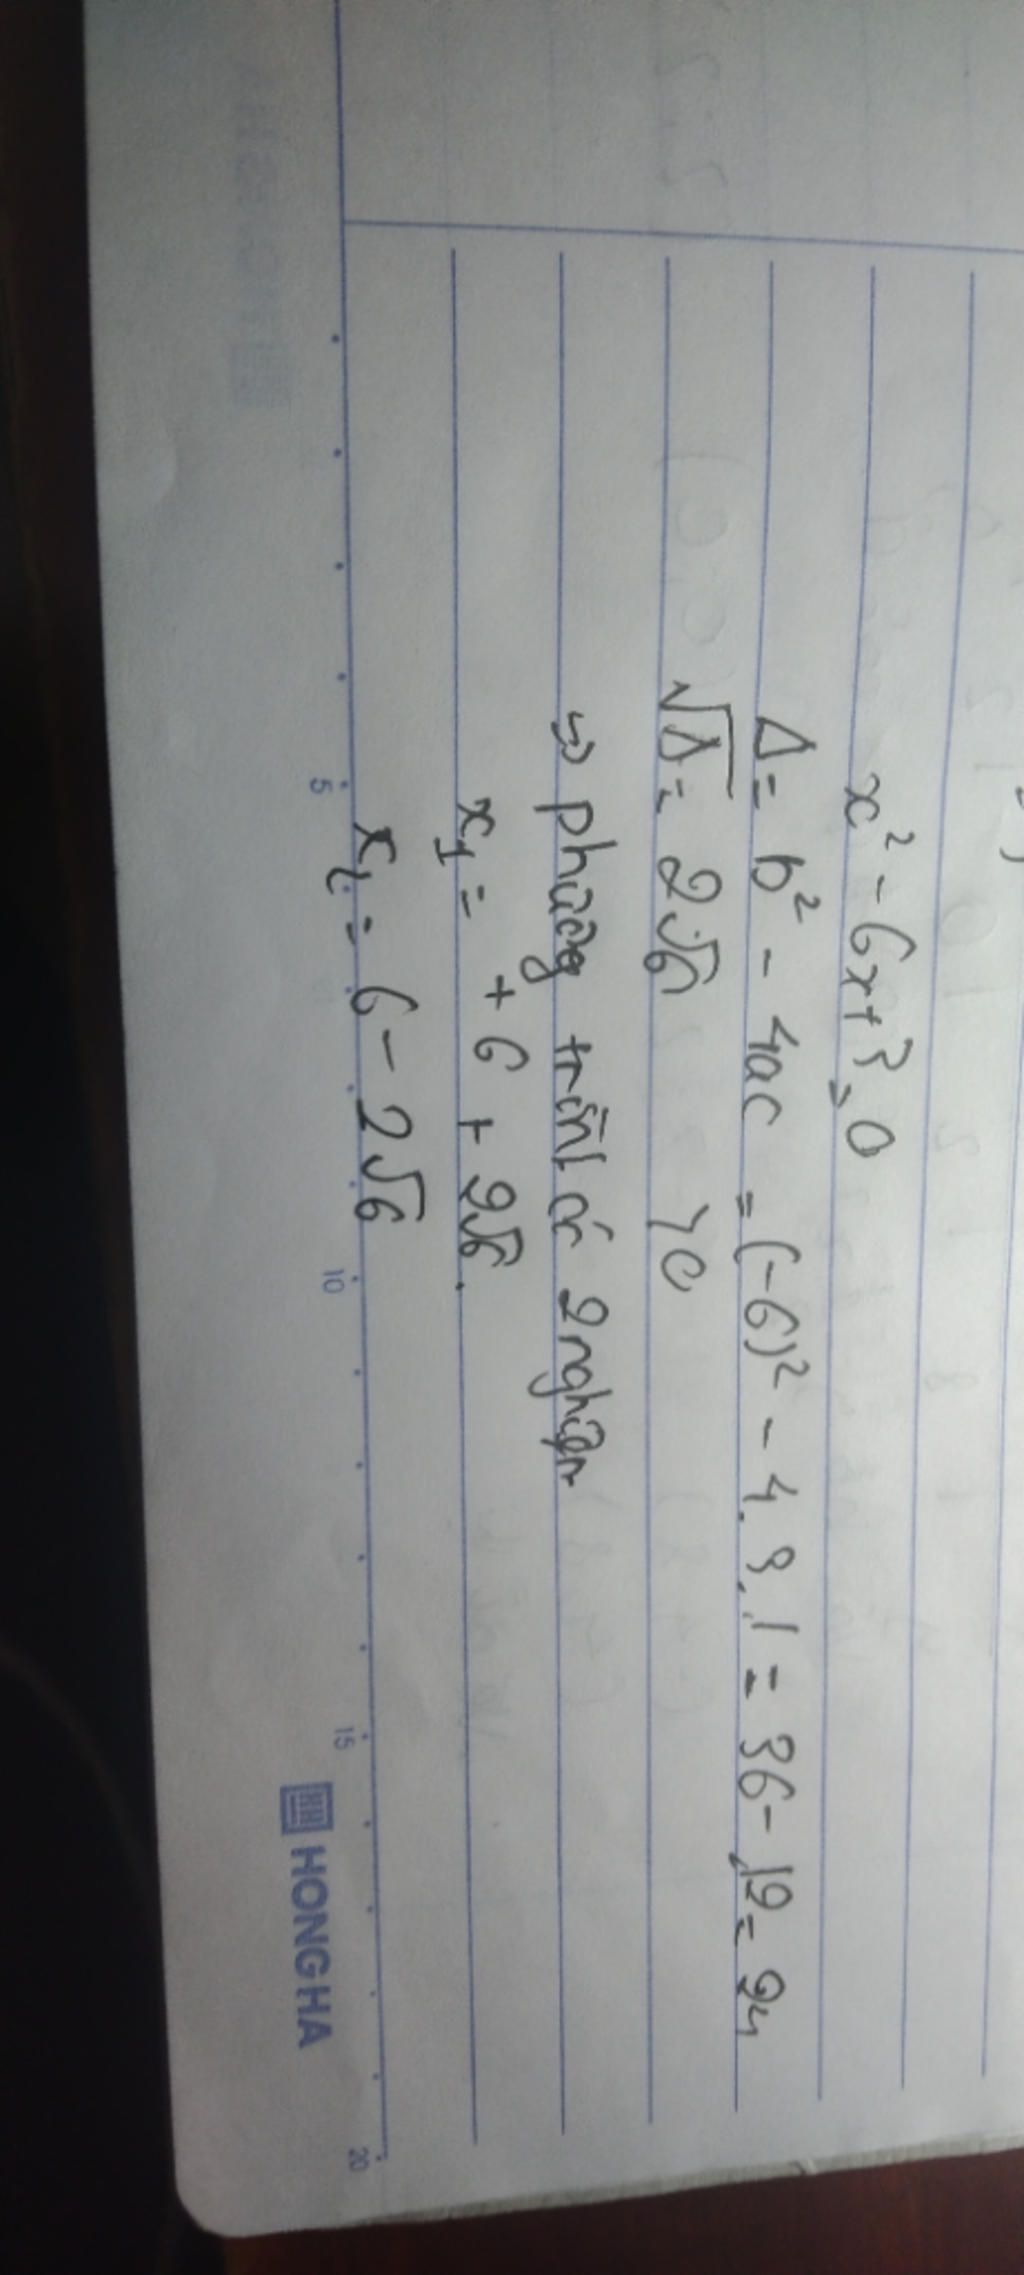 x² - 6x + 3 = 0
Δ = b² - 4ac = (-6)² - 4.3.1 = 36 - 12 = 24
√Δ = 2√6 > 0
=> phương trình có 2 nghiệm
x₁ = + 6 + 2√6.
x₂ = 6 - 2√6
5 10 15 20
HONG HA